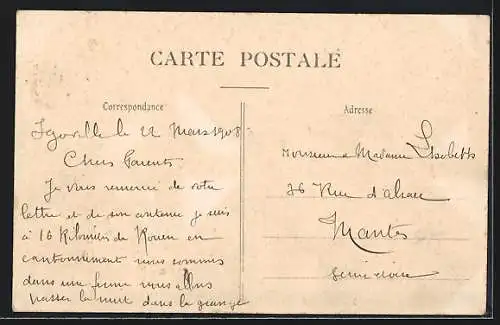 CARTE POSTALE
Correspondance
Adresse
Igoville le 22 Mars 1908
Chers Parents
Je vous remercie de votre
lettre et de son contenu je suis
à 16 Kilomètres de Rouen en
cantonnement nous sommes
dans une ferme nous allons
passer la nuit dans la grange
Monsieur & Madame
36 Rue d'alsace
Mantes
Seine et oise